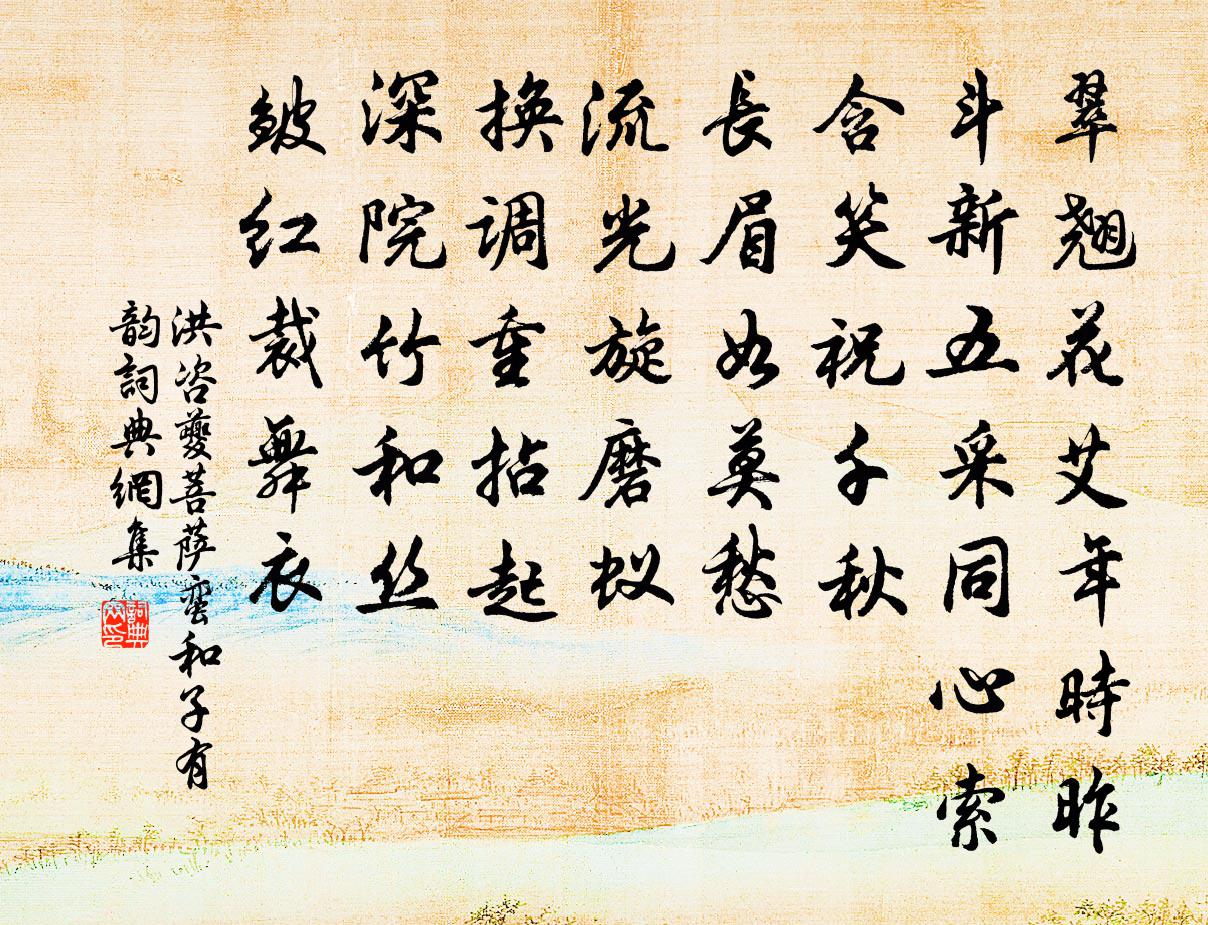 翠翘花艾年時昨
斗新五采同心索
含笑祝千秋
長眉如莫愁
流光旋磨蚁
換调重拈起
深院竹和丝
皴红裁舞衣
洪咨夔菩萨蛮和子有
韵詞典網集